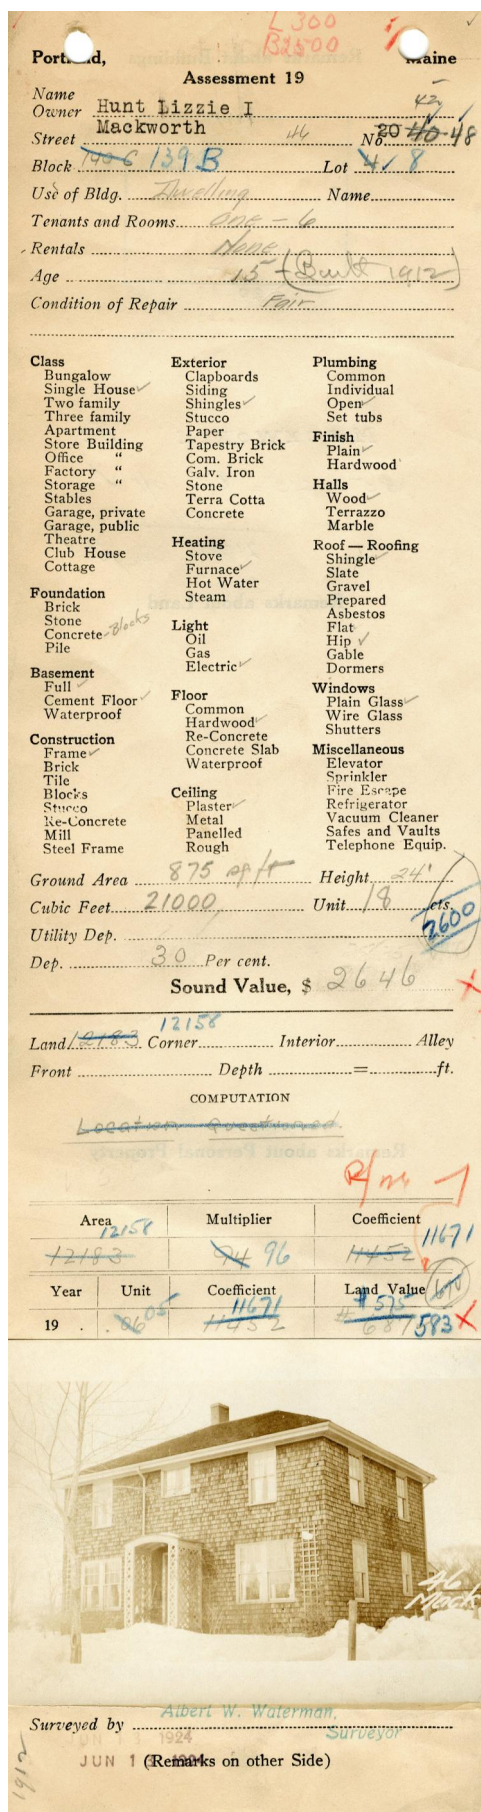 L 300
B2500
Portland, Maine
Assessment 19
Name
Owner Hunt Lizzie I
42
Street Mackworth 46 No. 20 40-48
Block 140 C 139 B Lot 4 8
Use of Bldg. Dwelling Name
Tenants and Rooms One - 6
Rentals None
Age 15 (Built 1912)
Condition of Repair Fair
Class
Bungalow
Single House ✓
Two family
Three family
Apartment
Store Building
Office "
Factory "
Storage "
Stables
Garage, private
Garage, public
Theatre
Club House
Cottage
Foundation
Brick
Stone
Concrete - Blocks
Pile
Basement
Full ✓
Cement Floor ✓
Waterproof
Construction
Frame ✓
Brick
Tile
Blocks
Stucco
Re-Concrete
Mill
Steel Frame
Exterior
Clapboards
Siding
Shingles ✓
Stucco
Paper
Tapestry Brick
Com. Brick
Galv. Iron
Stone
Terra Cotta
Concrete
Heating
Stove
Furnace ✓
Hot Water
Steam
Light
Oil
Gas
Electric ✓
Floor
Common
Hardwood ✓
Re-Concrete
Concrete Slab
Waterproof
Ceiling
Plaster ✓
Metal
Panelled
Rough
Plumbing
Common
Individual
Open ✓
Set tubs
Finish
Plain ✓
Hardwood
Halls
Wood ✓
Terrazzo
Marble
Roof — Roofing
Shingle ✓
Slate
Gravel
Prepared
Asbestos
Flat
Hip ✓
Gable
Dormers
Windows
Plain Glass ✓
Wire Glass
Shutters
Miscellaneous
Elevator
Sprinkler
Fire Escape
Refrigerator
Vacuum Cleaner
Safes and Vaults
Telephone Equip.
Ground Area 875 sq ft Height 24'
Cubic Feet 21000 Unit 18 cts.
2600
Utility Dep.
Dep. 30 Per cent.
Sound Value, $ 2646 X
12158
Land 12183 Corner Interior Alley
Front Depth = ft.
COMPUTATION
Location Questioned
Area Multiplier Coefficient
12158 11671
12183 94 96 11452
Year Unit Coefficient Land Value
05 11671 $575
19 06 11452 687 583 X
46
Mack
Surveyed by Albert W. Waterman,
Surveyor
1924
JUN 1
(Remarks on other Side)
1912